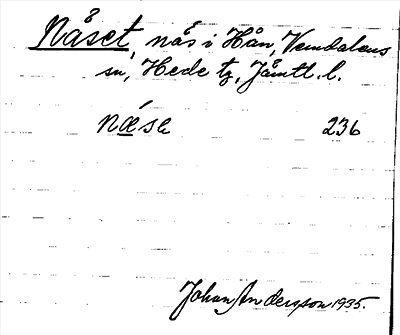 Nåset, nås i Hån, Vemdalens
sn, Hede tg, Jämtl. l.
næse 236
Johan Andersson 1935.